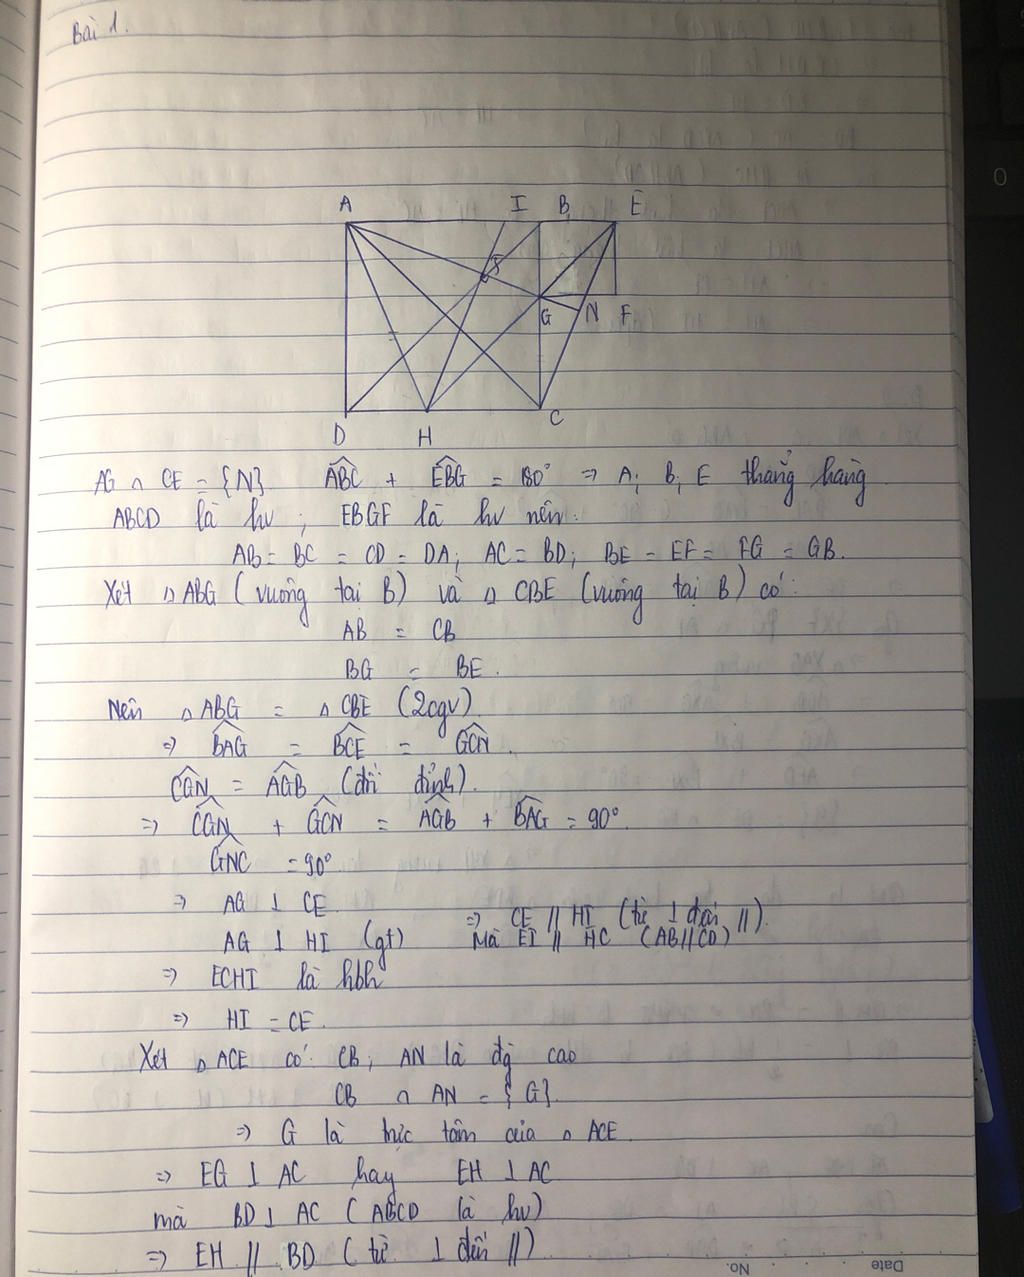 Bài 1.
A I B E
G N F
D H C
AG ∩ CE = {N} ABC^ + EBG^ = 180° => A; B, E thẳng hàng
ABCD là hv; EBGF là hv nên:
AB = BC = CD = DA; AC = BD; BE = EF = FG = GB.
Xét △ABG (vuông tại B) và △CBE (vuông tại B) có:
AB = CB
BG = BE.
Nên △ABG = △CBE (2cgv)
=> BAG^ = BCE^ = GCN^.
CGN^ = AGB^ (đối đỉnh).
=> CGN^ + GCN^ = AGB^ + BAG^ = 90°.
GNC^ = 90°
=> AG ⊥ CE
=> CE // HI (từ ⊥ đến //).
AG ⊥ HI (gt) Mà EI // HC (AB//CD)
=> ECHI là hbh
=> HI = CE.
Xét △ACE có: CB, AN là đg cao
CB ∩ AN = {G}.
=> G là trực tâm của △ACE.
=> EG ⊥ AC hay EH ⊥ AC
mà BD ⊥ AC (ABCD là hv)
=> EH // BD (từ ⊥ đến //)
Date No.